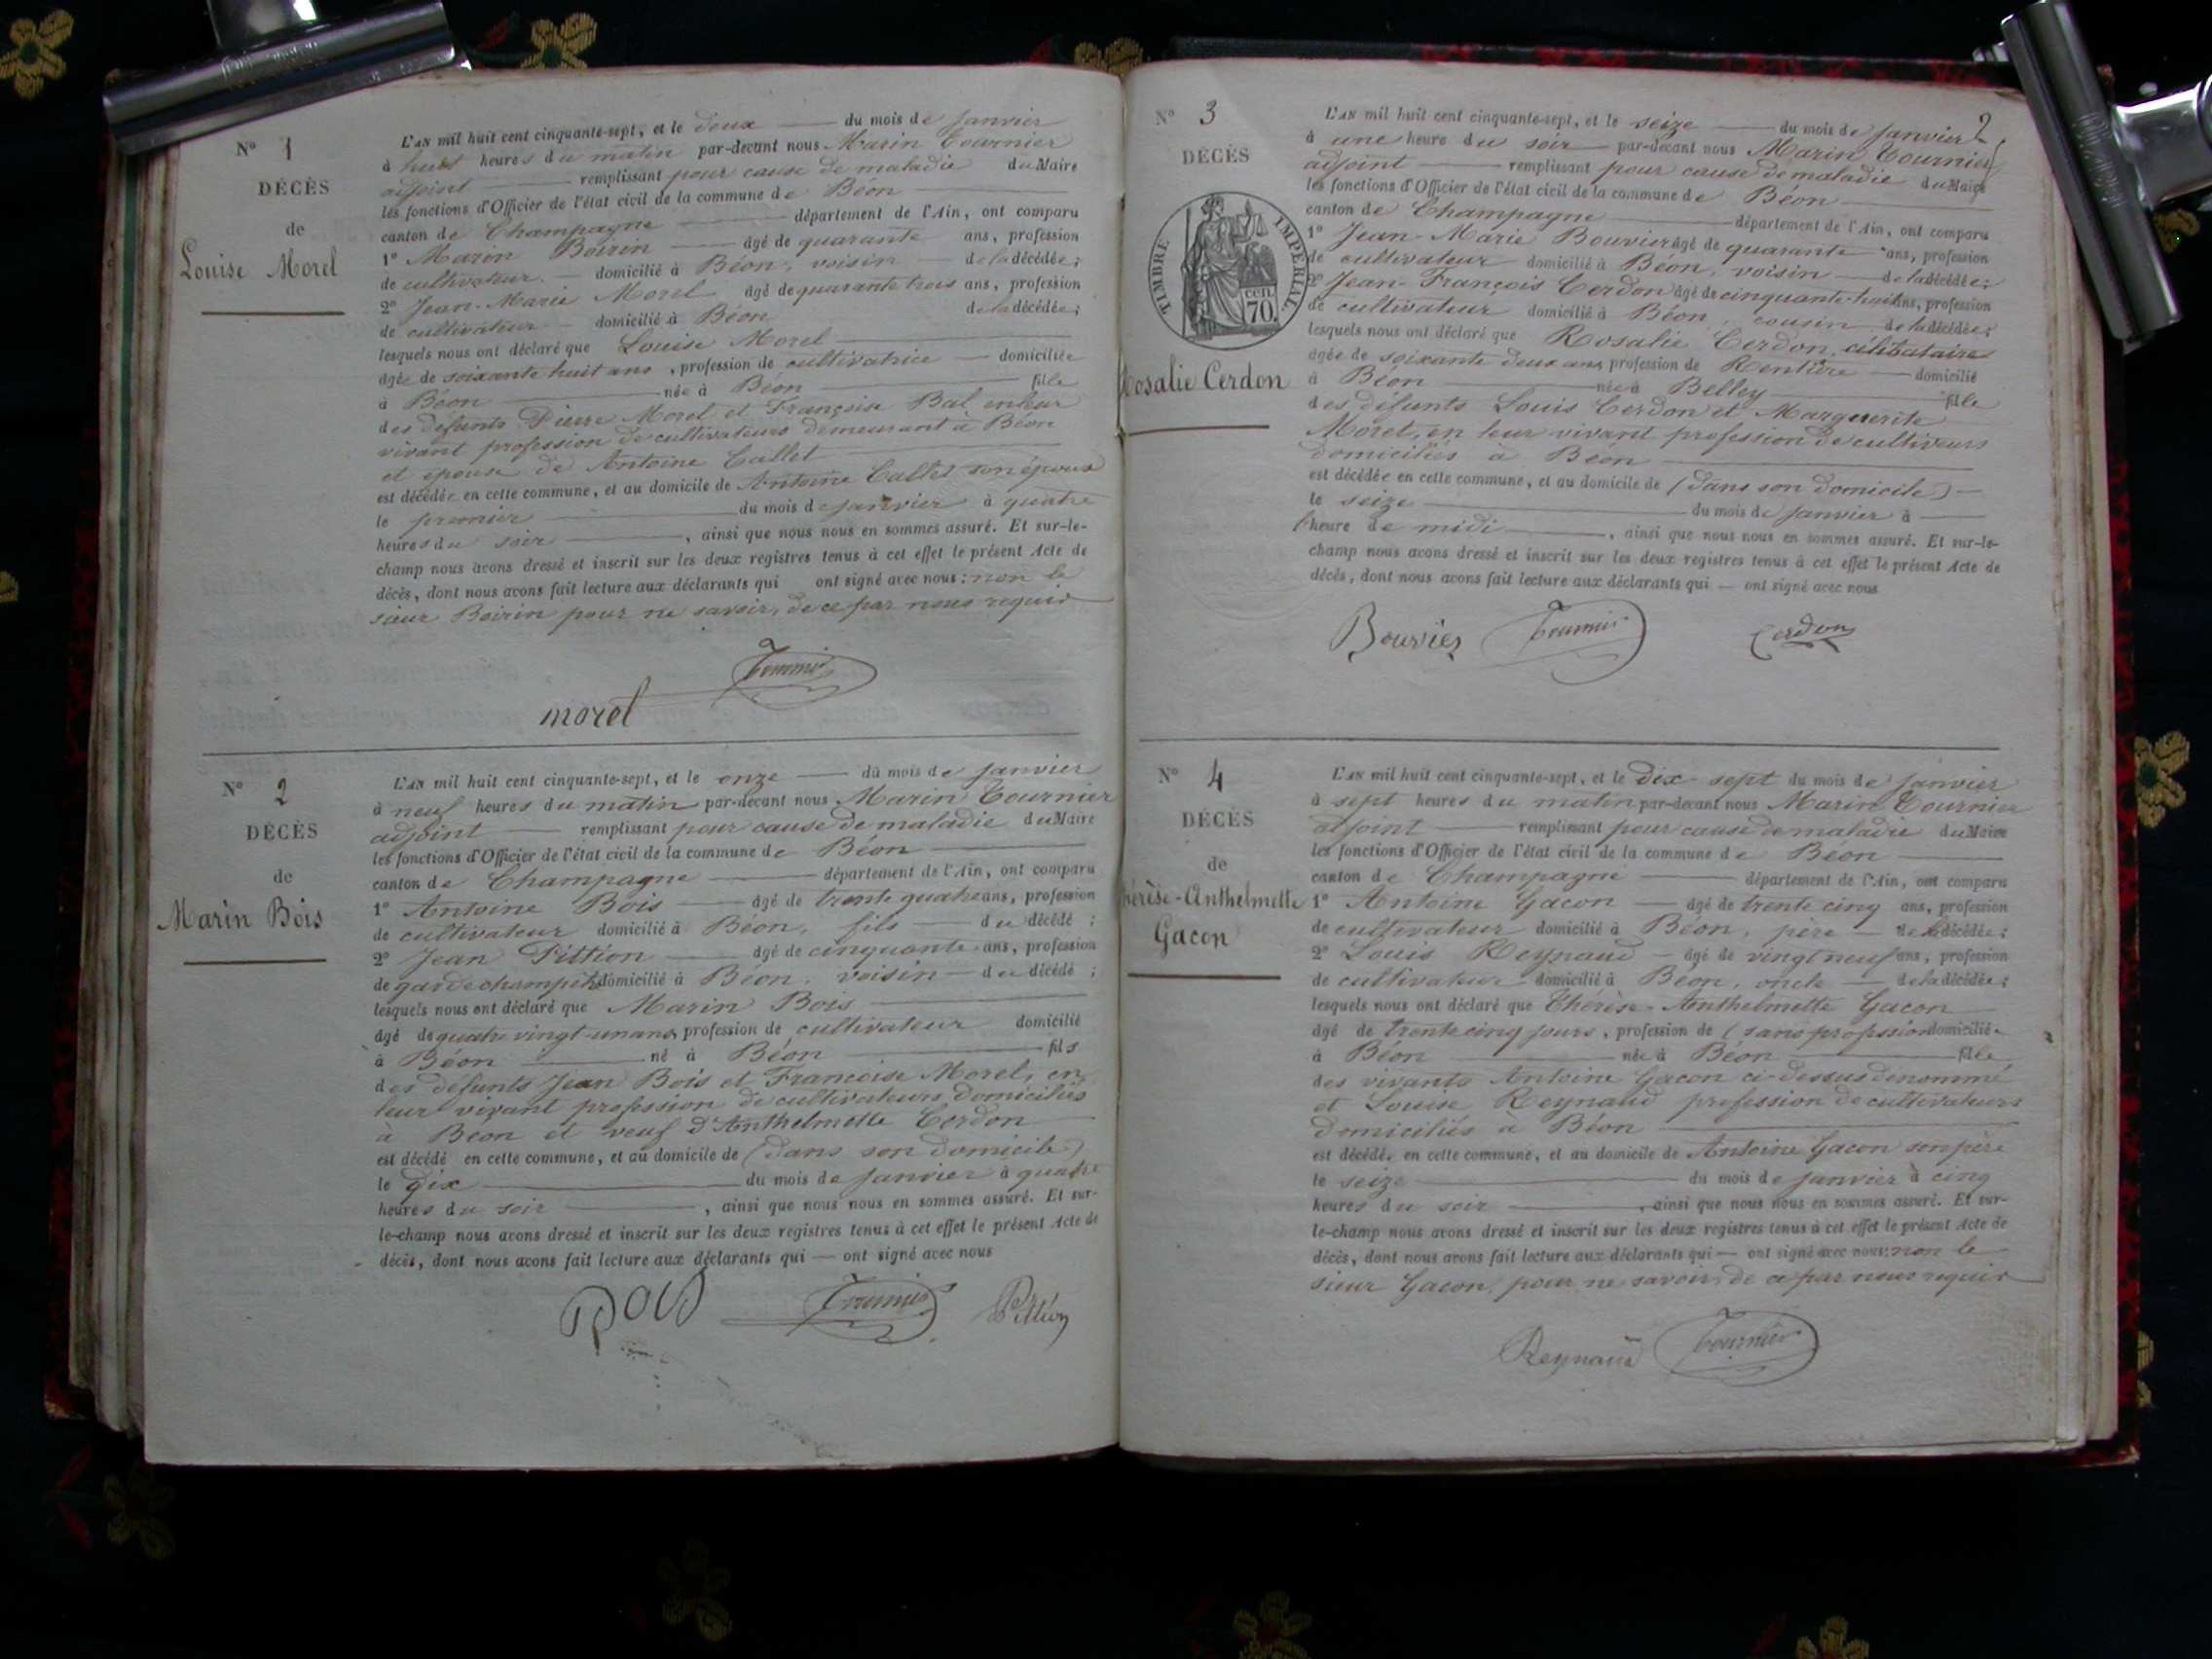 N° 1
DÉCÈS
de
Louise Morel
L'AN mil huit cent cinquante-sept, et le deux du mois de janvier
à huit heures du matin par-devant nous Marin Tournier
adjoint remplissant pour cause de maladie du Maire
les fonctions d'Officier de l'état civil de la commune de Béon
canton de Champagne département de l'Ain, ont comparu
1° Marin Boirin âgé de quarante ans, profession
de cultivateur domicilié à Béon, voisin de la décédée;
2° Jean-Marie Morel âgé de quarante trois ans, profession
de cultivateur domicilié à Béon de la décédée;
lesquels nous ont déclaré que Louise Morel
âgée de soixante huit ans, profession de cultivatrice domiciliée
à Béon née à Béon fille
des défunts Pierre Morel et Françoise Bal en leur
vivant profession de cultivateurs demeurant à Béon
et épouse de Antoine Callet
est décédée en cette commune, et au domicile de Antoine Callet son époux
le premier du mois de janvier à quatre
heures du soir, ainsi que nous nous en sommes assuré. Et sur-le-
champ nous avons dressé et inscrit sur les deux registres tenus à cet effet le présent Acte de
décès, dont nous avons fait lecture aux déclarants qui ont signé avec nous: non le
sieur Boirin pour ne savoir, de ce par nous requis
Tournier
morel
N° 2
DÉCÈS
de
Marin Bois
L'AN mil huit cent cinquante-sept, et le onze du mois de janvier
à neuf heures du matin par-devant nous Marin Tournier
adjoint remplissant pour cause de maladie du Maire
les fonctions d'Officier de l'état civil de la commune de Béon
canton de Champagne département de l'Ain, ont comparu
1° Antoine Bois âgé de trente quatre ans, profession
de cultivateur domicilié à Béon, fils du décédé;
2° Jean Pittion âgé de cinquante ans, profession
de garde champêt domicilié à Béon, voisin du décédé;
lesquels nous ont déclaré que Marin Bois
âgé de quatre vingt-un ans, profession de cultivateur domicilié
à Béon né à Béon fils
des défunts Jean Bois et Francoise Morel, en
leur vivant profession de cultivateurs domiciliés
à Béon et veuf d'Anthelmette Cerdon
est décédé en cette commune, et au domicile de (dans son domicile)
le dix du mois de janvier à quatre
heures du soir, ainsi que nous nous en sommes assuré. Et sur-
le-champ nous avons dressé et inscrit sur les deux registres tenus à cet effet le présent Acte de
décès, dont nous avons fait lecture aux déclarants qui — ont signé avec nous
Bois Tournier Pittion
2
N° 3
DÉCÈS
TIMBRE IMPÉRIAL.
cen. 70.
Rosalie Cerdon
L'AN mil huit cent cinquante-sept, et le seize du mois de janvier
à une heure du soir par-devant nous Marin Tournier
adjoint remplissant pour cause de maladie du Maire
les fonctions d'Officier de l'état civil de la commune de Béon
canton de Champagne département de l'Ain, ont comparu
1° Jean-Marie Bouvier âgé de quarante ans, profession
de cultivateur domicilié à Béon, voisin de la décédée;
2° Jean-François Cerdon âgé de cinquante-huit ans, profession
de cultivateur domicilié à Béon, cousin de la décédée;
lesquels nous ont déclaré que Rosalie Cerdon, célibataire
âgée de soixante deux ans, profession de Rentière domicilié
à Béon née à Belley fille
des défunts Louis Cerdon et Marguerite
Moret, en leur vivant profession de cultiveurs
domiciliés à Béon
est décédée en cette commune, et au domicile de (dans son domicile)
le seize du mois de janvier à
l'heure de midi, ainsi que nous nous en sommes assuré. Et sur-le-
champ nous avons dressé et inscrit sur les deux registres tenus à cet effet le présent Acte de
décès, dont nous avons fait lecture aux déclarants qui — ont signé avec nous
Bouvier Tournier Cerdon
N° 4
DÉCÈS
de
hérèse-Anthelmette
Gacon
L'AN mil huit cent cinquante-sept, et le Dix-sept du mois de janvier
à sept heures du matin par-devant nous Marin Tournier
adjoint remplissant pour cause de maladie du Maire
les fonctions d'Officier de l'état civil de la commune de Béon
canton de Champagne département de l'Ain, ont comparu
1° Antoine Gacon — âgé de trente cinq ans, profession
de cultivateur domicilié à Béon, père — de la décédée;
2° Louis Reynaud — âgé de vingt neuf ans, profession
de cultivateur domicilié à Béon, oncle de la décédée;
lesquels nous ont déclaré que Thérèse-Anthelmette Gacon
âgé de trente cinq jours, profession de (sans profession domiciliée
à Béon née à Béon fille
des vivants Antoine Gacon ci-dessus dénommé
et Louise Reynaud profession de cultivateurs
domiciliés à Béon
est décédée en cette commune, et au domicile de Antoine Gacon son père
le seize du mois de janvier à cinq
heures du soir, ainsi que nous nous en sommes assuré. Et sur-
le-champ nous avons dressé et inscrit sur les deux registres tenus à cet effet le présent Acte de
décès, dont nous avons fait lecture aux déclarants qui — ont signé avec nous: non le
sieur Gacon, pour ne savoir, de ce par nous requis
Reynaud Tournier